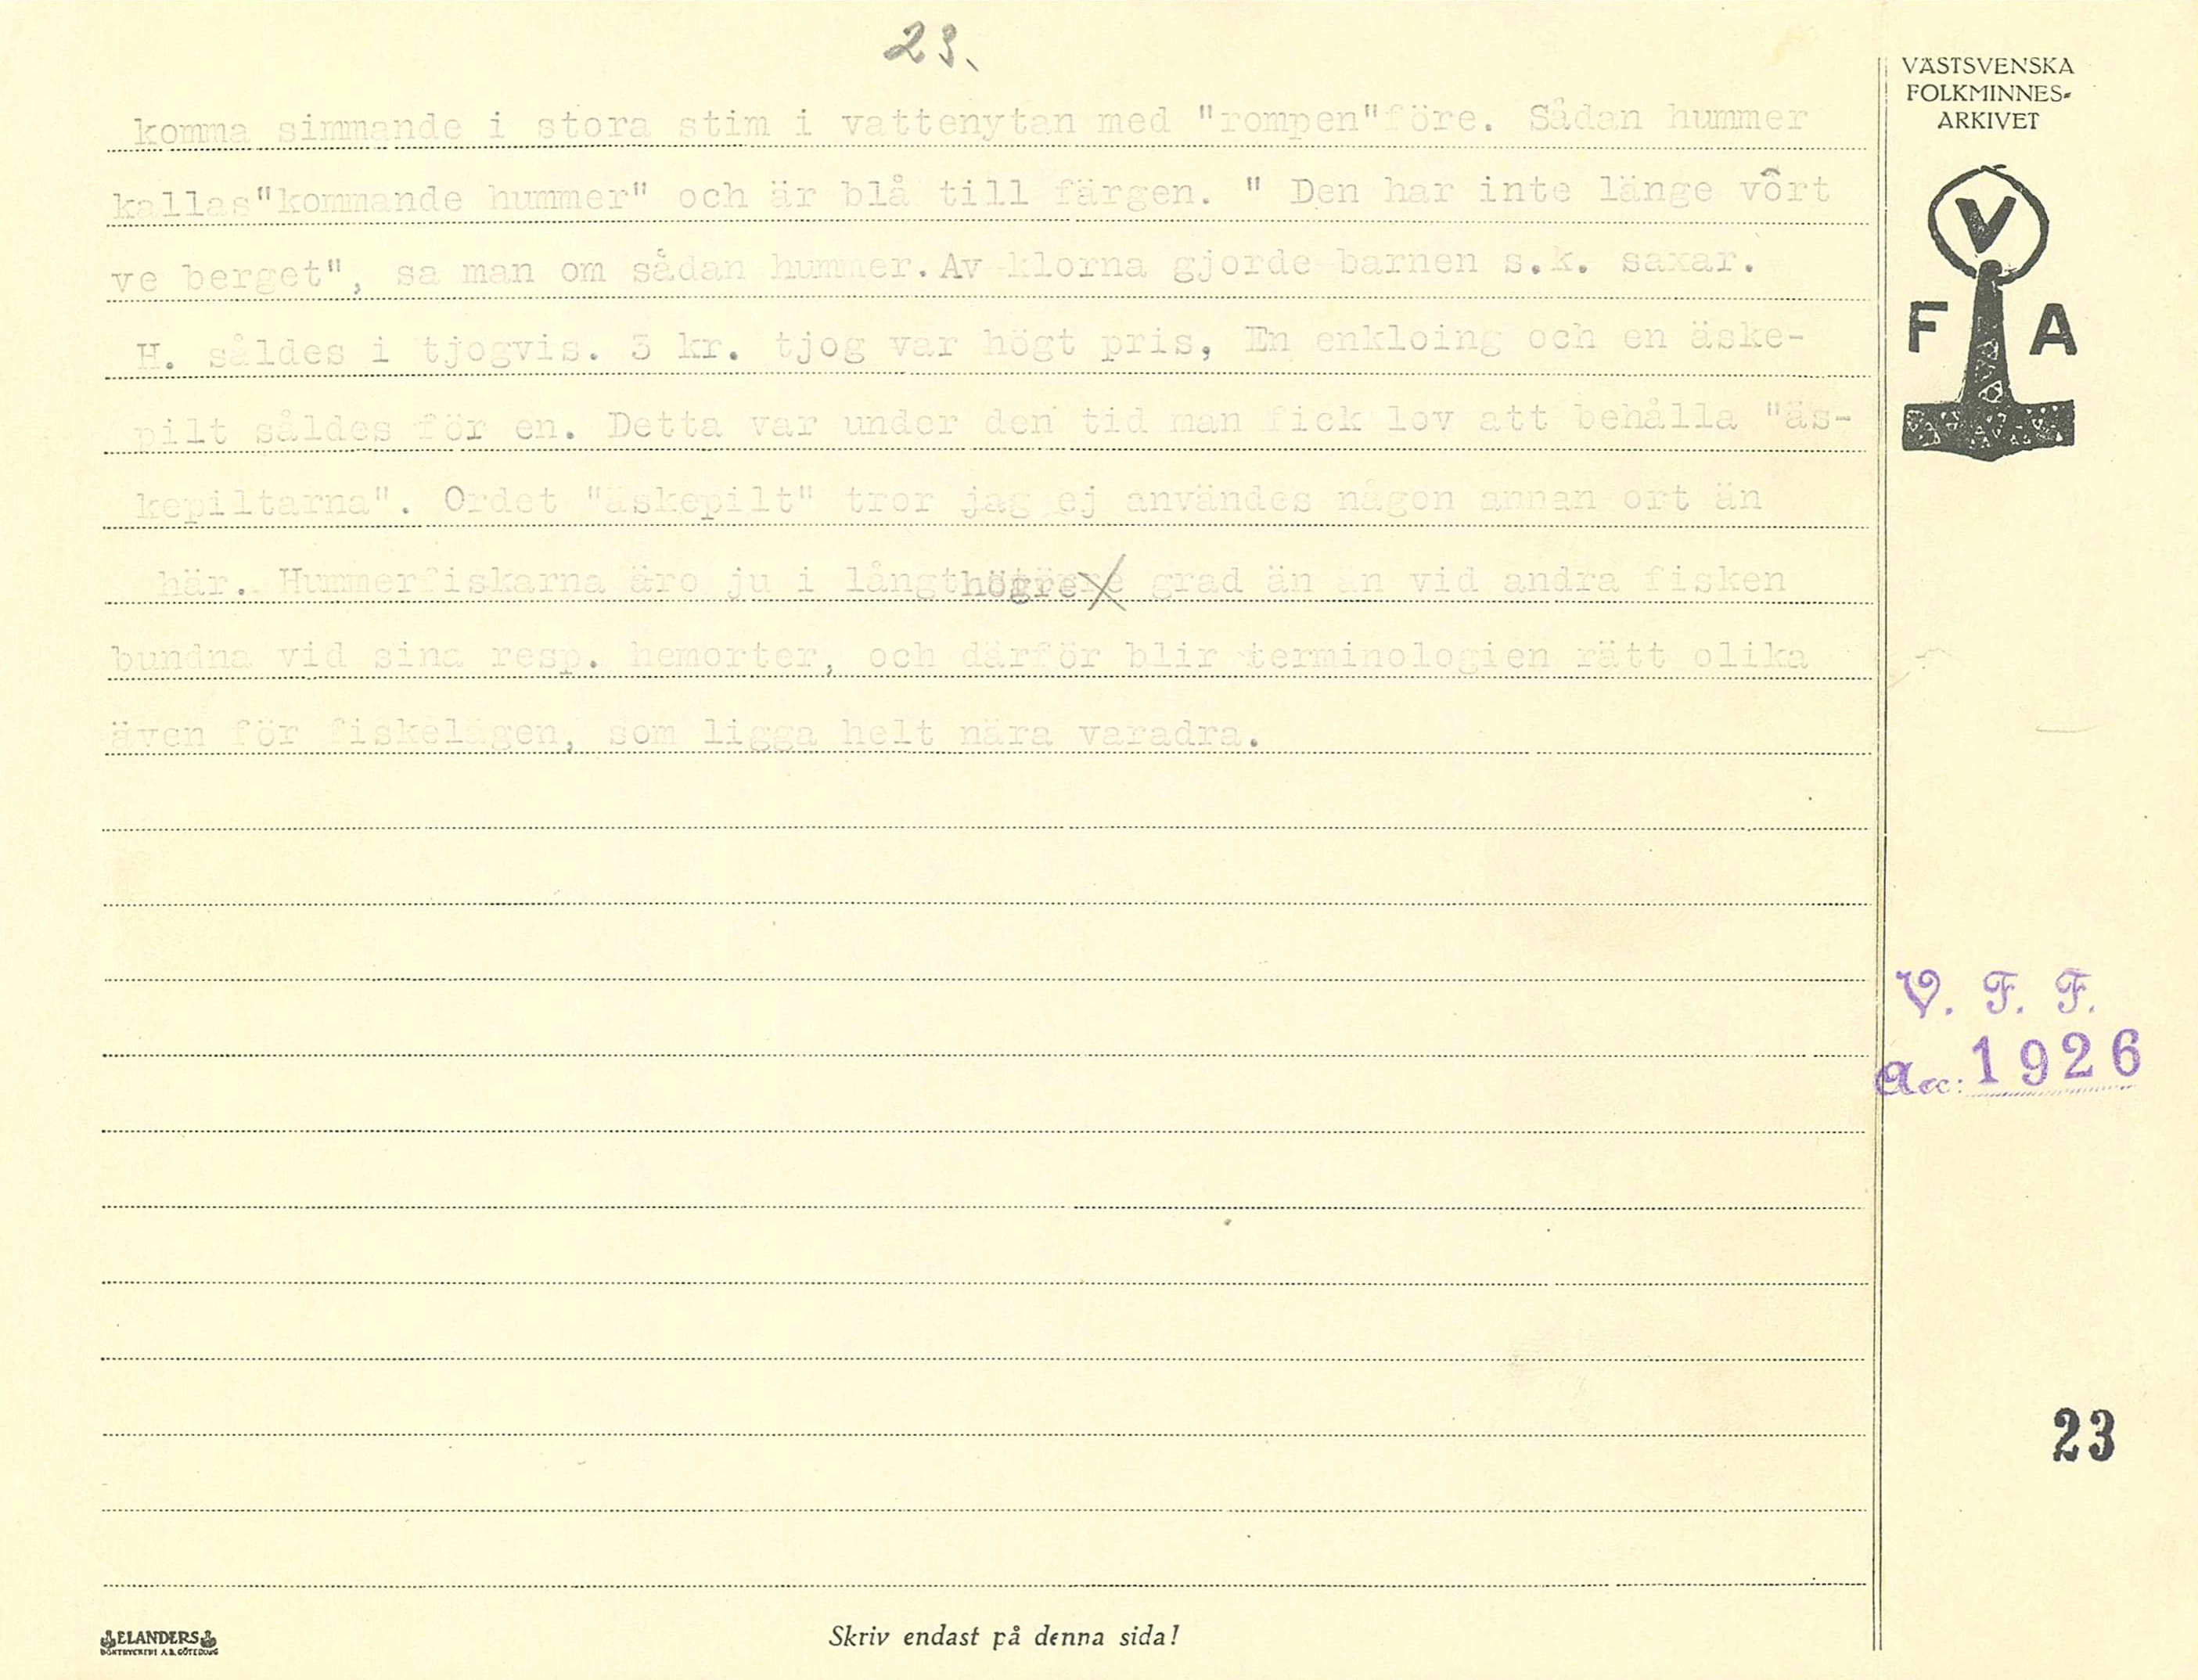 23.
VÄSTSVENSKA
FOLKMINNES-
ARKIVET
V
F A
komma simmande i stora stim i vattenytan med "rompen"före. Sådan hummer
kallas"kommande hummer" och är blå till färgen. " Den har inte länge vôrt
ve berget", sa man om sådan hummer.Av klorna gjorde barnen s.k. saxar.
H. såldes i tjogvis. 3 kr. tjog var högt pris, En enkloing och en äske-
pilt såldes för en. Detta var under den tid man fick lov att behålla "äs-
kepiltarna". Ordet "äskepilt" tror jag ej användes någon annan ort än
här. Hummerfiskarna äro ju i långt högre grad än an vid andra fisken
bundna vid sina resp. hemorter, och därför blir terminologien rätt olika
även för fiskelägen, som ligga helt nära varadra.
V. F. F.
Acc: 1926
23
ELANDERS
BOKTRYCKERI A.B. GÖTEBORG
Skriv endast på denna sida!